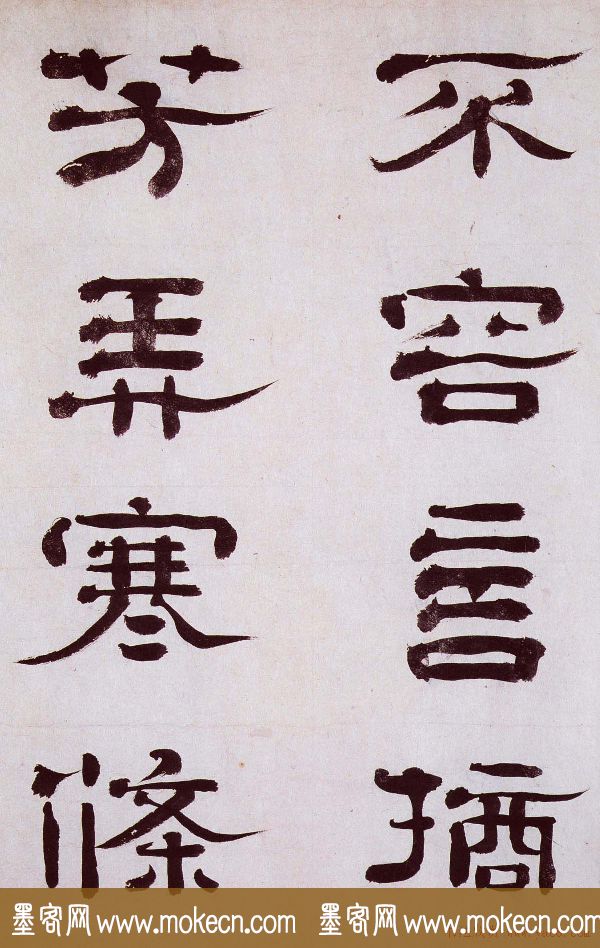 不容言摘
芳弄寒條
墨客网 www.mokecn.com 墨客网 www.mokecn.com